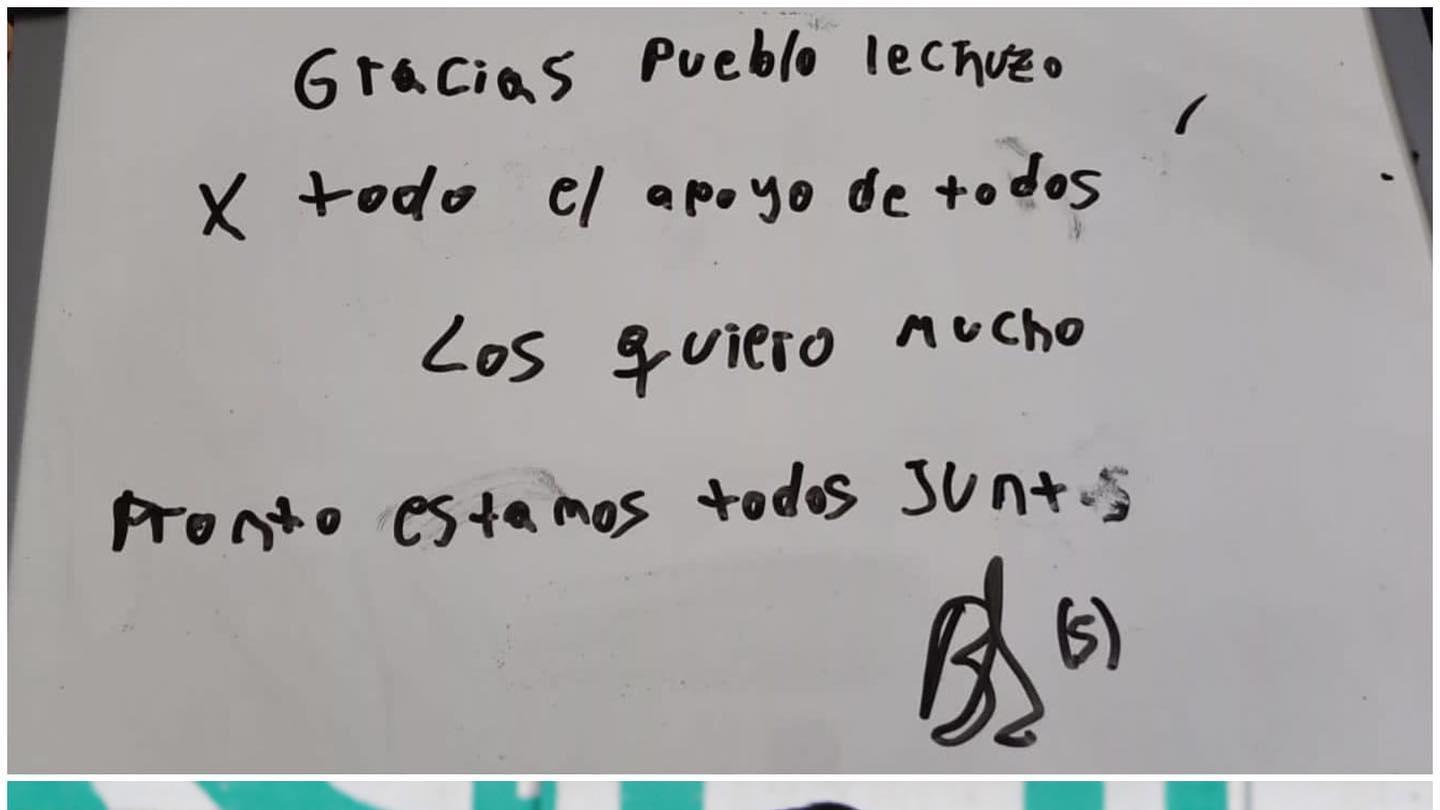 Gracias Pueblo lechuzo
X todo el apoyo de todos
Los quiero mucho
Pronto estamos todos Juntos
(5)